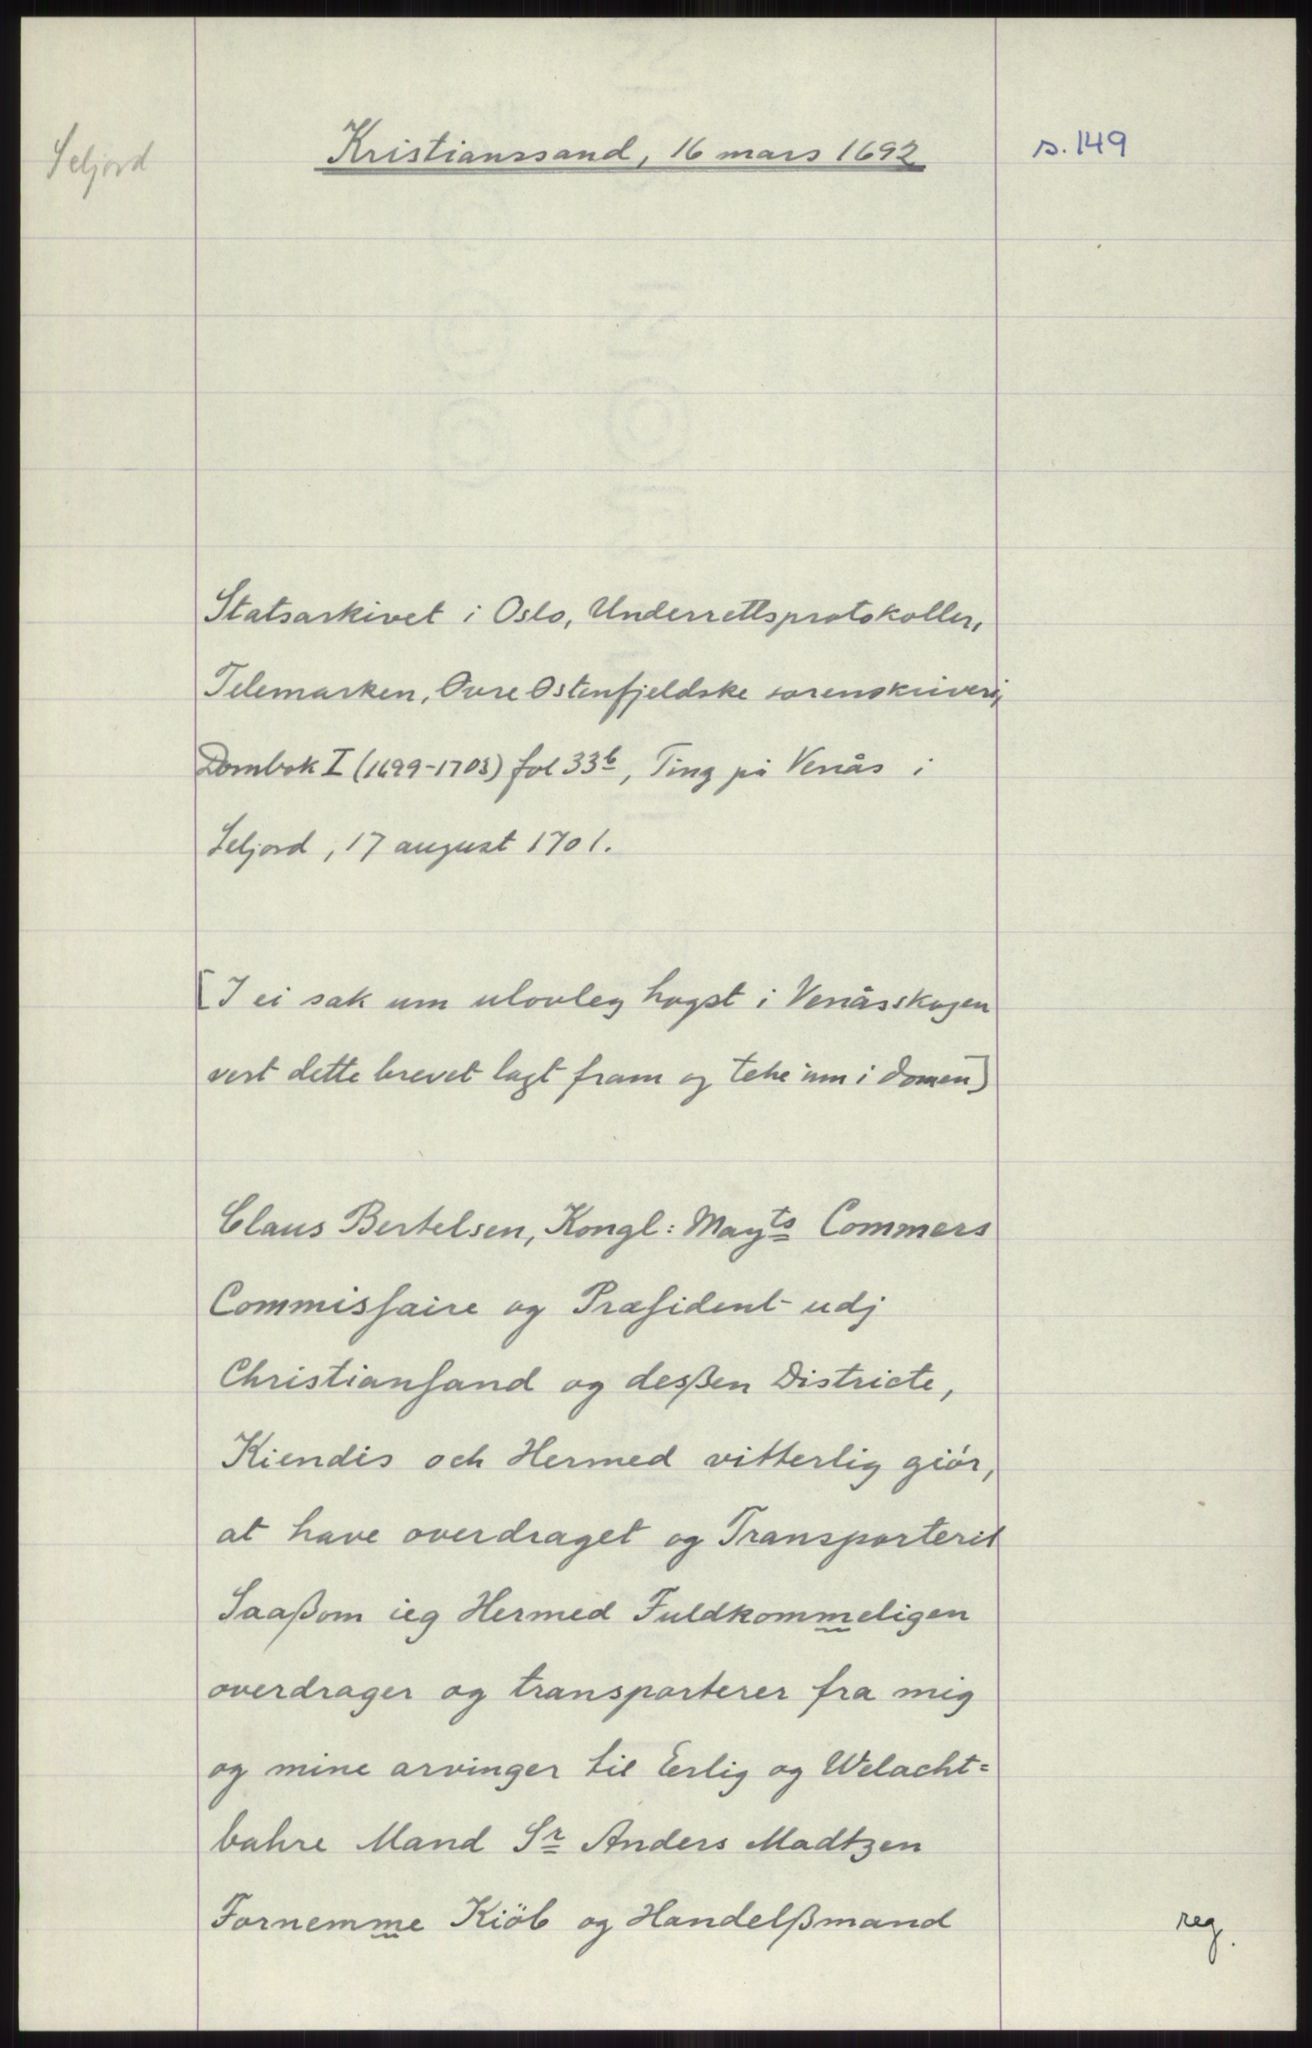 Seljord
Kristianssand, 16 mars 1692
s. 149
Statsarkivet i Oslo, Underrettsprotokoller,
Telemarken, Øvre Østenfjeldske sorenskriveri,
Dombok I (1699-1703) fol 33b, Ting på Venås i
Seljord, 17 august 1701.
[I ei sak um ulovleg hogst i Venåsskogen
vert dette brevet lagt fram og teke inn i domen]
Claus Bertelsen, Kongl: Mayts Commers
Commisſaire og Præſident udj
Christianſand og desßen Districte,
Kiendis och Hermed vitterlig giör,
at have overdraget og Transporterit
Saaßom ieg Hermed Fuldkommeligen
overdrager og transporterer fra mig
og mine arvinger til Eerlig og Welacht=
bahre Mand Sr Anders Madtzen
Fornemme Kiöb og Handelßmand
reg.